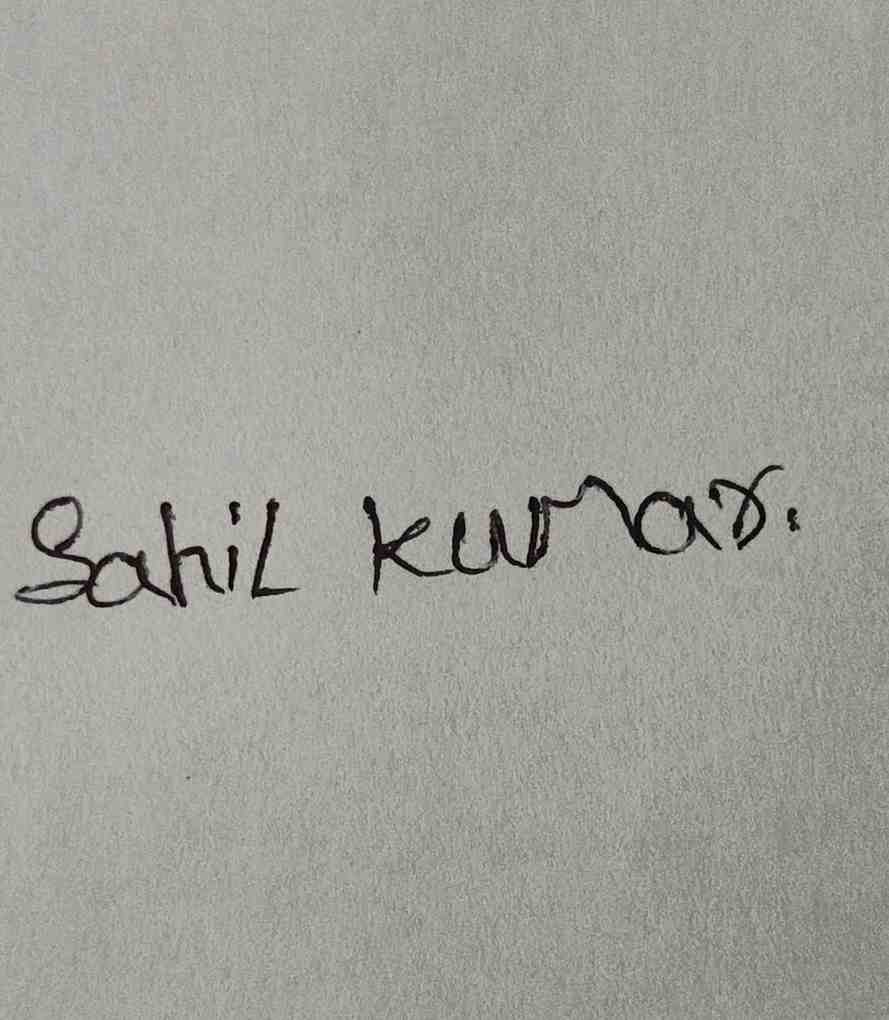 Sahil Kumar.